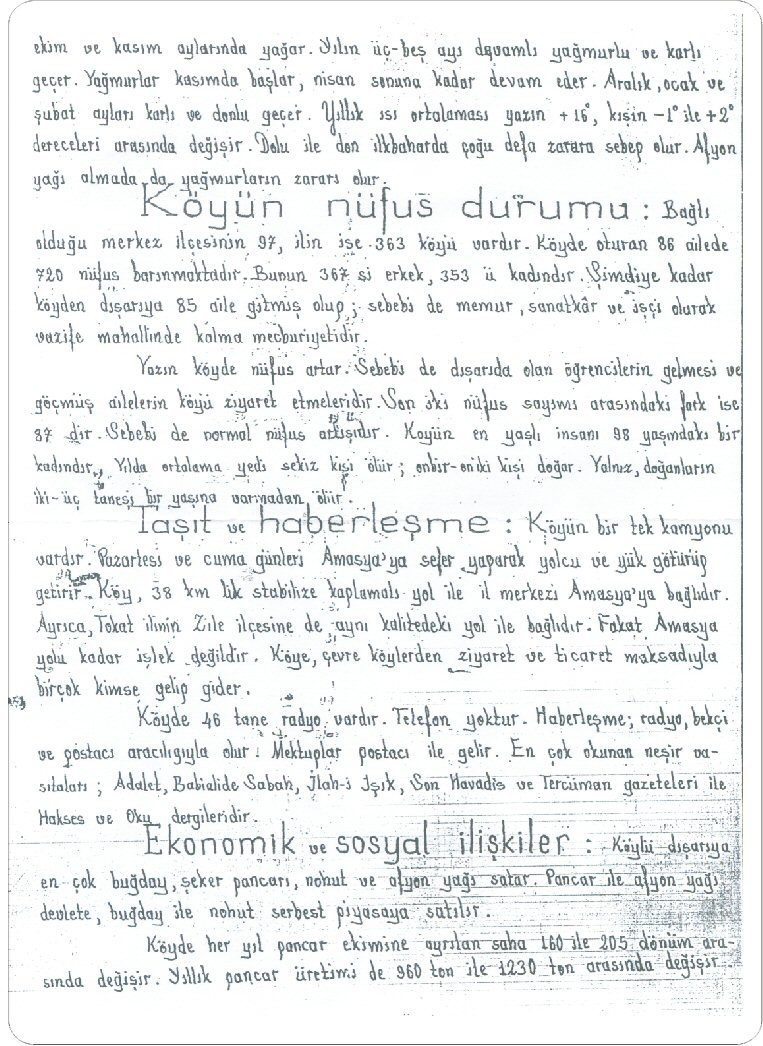 ekim ve kasım aylarında yağar. Yılın üç-beş ayı devamlı yağmurlu ve karlı
geçer. Yağmurlar kasımda başlar, nisan sonuna kadar devam eder. Aralık, ocak ve
şubat ayları karlı ve donlu geçer. Yıllık ısı ortalaması yazın +16°, kışın -1° ile +2°
dereceleri arasında değişir. Dolu ile don ilkbaharda çoğu defa zarara sebep olur. Afyon
yağı almada da yağmurların zararı olur.
Köyün nüfus durumu : Bağlı
olduğu merkez ilçesinin 97, ilin ise 363 köyü vardır. Köyde oturan 86 ailede
720 nüfus barınmaktadır. Bunun 367 si erkek, 353 ü kadındır. Şimdiye kadar
köyden dışarıya 85 aile gitmiş olup; sebebi de memur, sanatkâr ve işçi olarak
vazife mahallinde kalma mecburiyetidir.
Yazın köyde nüfus artar. Sebebi de dışarıda olan öğrencilerin gelmesi ve
göçmüş ailelerin köyü ziyaret etmeleridir. Son iki nüfus sayımı arasındaki fark ise
87 dir. Sebebi de normal nüfus artışıdır. Köyün en yaşlı insanı 98 yaşındaki bir
kadındır. Yılda ortalama yedi sekiz kişi ölür; onbir-oniki kişi doğar. Yalnız, doğanların
iki-üç tanesi bir yaşına varmadan ölür.
Taşıt ve haberleşme : Köyün bir tek kamyonu
vardır. Pazartesi ve cuma günleri Amasya'ya sefer yaparak yolcu ve yük götürüp
getirir. Köy, 38 km lik stabilize kaplamalı yol ile il merkezi Amasya'ya bağlıdır.
Ayrıca, Tokat ilinin Zile ilçesine de aynı kalitedeki yol ile bağlıdır. Fakat Amasya
yolu kadar işlek değildir. Köye, çevre köylerden ziyaret ve ticaret maksadıyla
birçok kimse gelip gider.
Köyde 46 tane radyo vardır. Telefon yoktur. Haberleşme; radyo, bekçi
ve postacı aracılığıyla olur. Mektuplar postacı ile gelir. En çok okunan neşir va-
sıtaları; Adalet, Babıalide Sabah, İlah-i Işık, Son Havadis ve Tercüman gazeteleri ile
Hakses ve Oku dergileridir.
Ekonomik ve sosyal ilişkiler : Köylü dışarıya
en çok buğday, şeker pancarı, nohut ve afyon yağı satar. Pancar ile afyon yağı
devlete, buğday ile nohut serbest piyasaya satılır.
Köyde her yıl pancar ekimine ayrılan saha 160 ile 205 dönüm ara-
sında değişir. Yıllık pancar üretimi de 960 ton ile 1230 ton arasında değişir.